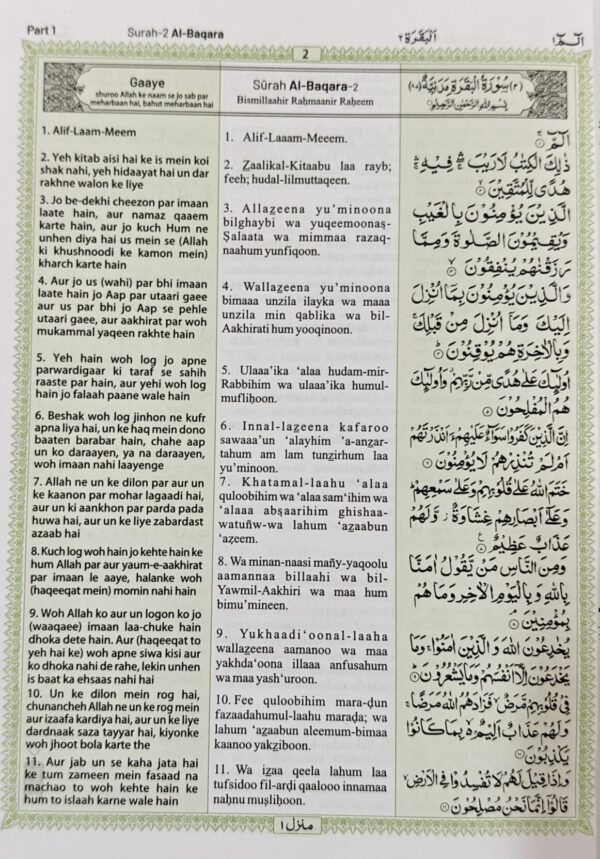 Part 1
Surah-2 Al-Baqara
اَلْبَقَرَة ٢
الٓمّٓ ١
2
Gaaye
shuroo Allah ke naam se jo sab par
meharbaan hai, bahut meharbaan hai
1. Alif-Laam-Meem
2. Yeh kitab aisi hai ke is mein koi
shak nahi, yeh hidaayat hai un dar
rakhne walon ke liye
3. Jo be-dekhi cheezon par imaan
laate hain, aur namaz qaaem
karte hain, aur jo kuch Hum ne
unhen diya hai us mein se (Allah
ki khushnoodi ke kamon mein)
kharch karte hain
4. Aur jo us (wahi) par bhi imaan
laate hain jo Aap par utaari gaee
aur us par bhi jo Aap se pehle
utaari gaee, aur aakhirat par woh
mukammal yaqeen rakhte hain
5. Yeh hain woh log jo apne
parwardigaar ki taraf se sahih
raaste par hain, aur yehi woh log
hain jo falaah paane wale hain
6. Beshak woh log jinhon ne kufr
apna liya hai, un ke haq mein dono
baaten barabar hain, chahe aap
un ko daraayen, ya na daraayen,
woh imaan nahi laayenge
7. Allah ne un ke dilon par aur un
ke kaanon par mohar lagaadi hai,
aur un ki aankhon par parda pada
huwa hai, aur un ke liye zabardast
azaab hai
8. Kuch log woh hain jo kehte hain ke
hum Allah par aur yaum-e-aakhirat
par imaan le aaye, halanke woh
(haqeeqat mein) momin nahi hain
9. Woh Allah ko aur un logon ko jo
(waaqaee) imaan laa-chuke hain
dhoka dete hain. Aur (haqeeqat to
yeh hai ke) woh apne siwa kisi aur
ko dhoka nahi de rahe, lekin unhen
is baat ka ehsaas nahi hai
10. Un ke dilon mein rog hai,
chunancheh Allah ne un ke rog mein
aur izaafa kardiya hai, aur un ke liye
dardnaak saza tayyar hai, kiyonke
woh jhoot bola karte the
11. Aur jab un se kaha jata hai
ke tum zameen mein fasaad na
machao to woh kehte hain ke
hum to islaah karne wale hain
Sûrah Al-Baqara-2
Bismillaahir Raḥmaanir Raḥeem
1. Alif-Laaam-Meeem.
2. Z̲aalikal-Kitaabu laa rayb;
feeh; hudal-lilmuttaqeen.
3. Allaz̲eena yu’minoona
bilghaybi wa yuqeemoonaṣ-
Ṣalaata wa mimmaa razaq-
naahum yunfiqoon.
4. Wallaz̲eena yu’minoona
bimaaa unzila ilayka wa maaa
unzila min qablika wa bil-
Aakhirati hum yooqinoon.
5. Ulaaa’ika ‘alaa hudam-mir-
Rabbihim wa ulaaa’ika humul-
mufliḥoon.
6. Innal-laz̲eena kafaroo
sawaaa’un ‘alayhim ’a-anz̲ar-
tahum am lam tunz̲irhum laa
yu’minoon.
7. Khatamal-laahu ‘alaa
quloobihim wa ‘alaa sam‘ihim wa
‘alaaa abṣaarihim ghishaa-
watuñw-wa lahum ‘az̲aabun
‘aẓeem.
8. Wa minan-naasi mañy-yaqoolu
aamannaa billaahi wa bil-
Yawmil-Aakhiri wa maa hum
bimu’mineen.
9. Yukhaadi‘oonal-laaha
wallaz̲eena aamanoo wa maa
yakhda‘oona illaaa anfusahum
wa maa yash‘uroon.
10. Fee quloobihim mara-ḍun
fazaadahumul-laahu maraḍa; wa
lahum ‘az̲aabun aleemum-bimaa
kaanoo yakz̲iboon.
11. Wa iz̲aa qeela lahum laa
tufsidoo fil-arḍi qaalooo innamaa
naḥnu muṣliḥoon.
(٢) سُوْرَةُ الْبَقَرَةِ مَدَنِيَّةٌ (٨٧)
بِسْمِ اللهِ الرَّحْمٰنِ الرَّحِيْمِ
الٓمّٓ ۝١
ذٰلِكَ الْكِتٰبُ لَا رَيْبَ ۛ فِيْهِ ۛ
هُدًى لِّلْمُتَّقِيْنَ ۝٢
الَّذِيْنَ يُؤْمِنُوْنَ بِالْغَيْبِ
وَيُقِيْمُوْنَ الصَّلٰوةَ وَمِمَّا
رَزَقْنٰهُمْ يُنْفِقُوْنَ ۝٣
وَالَّذِيْنَ يُؤْمِنُوْنَ بِمَآ اُنْزِلَ
اِلَيْكَ وَمَآ اُنْزِلَ مِنْ قَبْلِكَ ۚ
وَبِالْاٰخِرَةِ هُمْ يُوْقِنُوْنَ ۝٤
اُولٰٓئِكَ عَلٰى هُدًى مِّنْ رَّبِّهِمْ ۗ وَاُولٰٓئِكَ
هُمُ الْمُفْلِحُوْنَ ۝٥
اِنَّ الَّذِيْنَ كَفَرُوْا سَوَآءٌ عَلَيْهِمْ ءَاَنْذَرْتَهُمْ
اَمْ لَمْ تُنْذِرْهُمْ لَا يُؤْمِنُوْنَ ۝٦
خَتَمَ اللهُ عَلٰى قُلُوْبِهِمْ وَعَلٰى سَمْعِهِمْ ۗ
وَعَلٰٓى اَبْصَارِهِمْ غِشَاوَةٌ ۡ وَّلَهُمْ
عَذَابٌ عَظِيْمٌ ۝٧
وَمِنَ النَّاسِ مَنْ يَّقُوْلُ اٰمَنَّا
بِاللهِ وَبِالْيَوْمِ الْاٰخِرِ وَمَا هُمْ
بِمُؤْمِنِيْنَ ۝٨
يُخٰدِعُوْنَ اللهَ وَالَّذِيْنَ اٰمَنُوْا ۚ وَمَا
يَخْدَعُوْنَ اِلَّآ اَنْفُسَهُمْ وَمَا يَشْعُرُوْنَ ۝٩
فِيْ قُلُوْبِهِمْ مَّرَضٌ ۙ فَزَادَهُمُ اللهُ مَرَضًا ۚ
وَلَهُمْ عَذَابٌ اَلِيْمٌ ۢ ۙ بِمَا كَانُوْا
يَكْذِبُوْنَ ۝١٠
وَاِذَا قِيْلَ لَهُمْ لَا تُفْسِدُوْا فِي الْاَرْضِ ۙ
قَالُوْٓا اِنَّمَا نَحْنُ مُصْلِحُوْنَ ۝١١
منزل ١